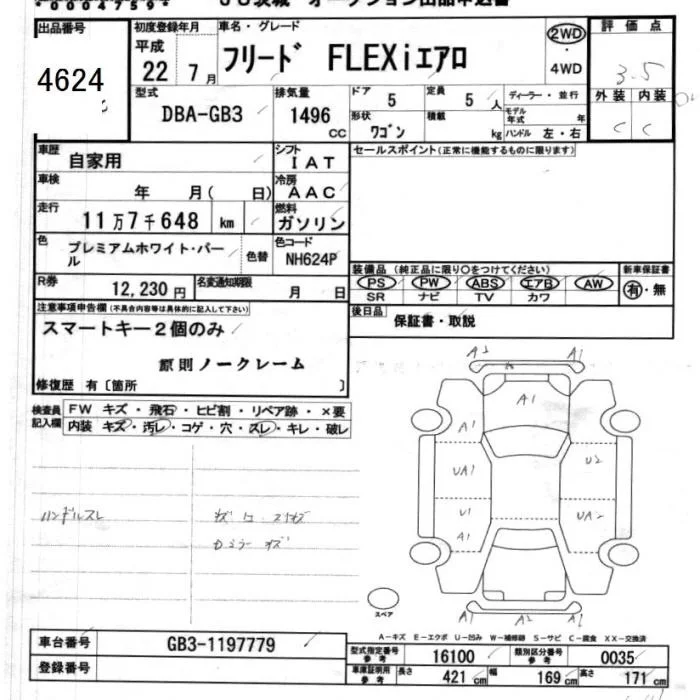 0004759
JU茨城 オークション出品申込書
出品番号 初度登録年月 車名・グレード 2WD 評価点
4624 平成 22年 7月 フリード FLEXiエアロ 4WD 3.5
型式 排気量 ドア 5 定員 5人 ディーラー・並行 外装 内装
DBA-GB3 1496cc 形状 ワゴン 積載 kg モデル年式 年 C C
ハンドル 左・右
車歴 自家用 シフト IAT セールスポイント(正常に機能するものに限ります)
車検 年 月(日) 冷房 AAC
走行 11万7千648km 燃料 ガソリン
色 プレミアムホワイト・パール 色替 色コード NH624P
装備品(純正品に限り○をつけてください) 新車保証書
R券 12,230円 名変通知期限 月 日 PS PW ABS エアB AW 有・無
SR ナビ TV カワ
注意事項申告欄(不具合内容等は具体的に記入して下さい) 後日品 保証書・取説
スマートキー2個のみ
原則ノークレーム
修復歴 有〔箇所 〕
検査員記入欄 FW キズ・飛石・ヒビ割・リペア跡・×要
内装 キズ・汚レ・コゲ・穴・スレ・キレ・破レ
A2 A1
A1
A1
UA1 U2
U1 UA2
A1
ハンドルスレ
スペア
A1 A2 A2
A-キズ E-エクボ U-凹み W-補修跡 S-サビ C-腐食 XX-交換済
車台番号 GB3-1197779 型式指定番号 参考 16100 類別区分番号 参考 0035
登録番号 車庫証明用 参考 長さ 421cm 幅 169cm 高さ 171cm